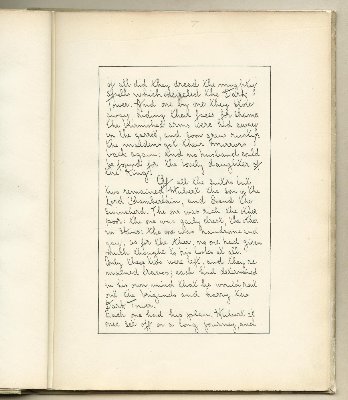 of all did they dread the mighty
spells which defended the Dark
Tower. And one by one they stole
away hiding their faces for shame
the burnished arms were hid away
in the garret, and soon grew rusty
the maidens got their mirrors
back again: and no husband could
be found for the lovely daughter of
the King.
Of all the suitors but
two remained Hubert the son of the
Lord Chamberlain, and Svend the
swineherd. The one was rich the other
poor: the one was gaily clad, the other
in skins: the one was handsome and
gay, as for the other, no one had given
much thought to his looks at all.
Only these two were left, and they re-
mained because each had determined
in his own mind that he would root
out the brigands and harry the
Dark Tower.
Each one had his plan. Hubert at
once set off on a long journey, and